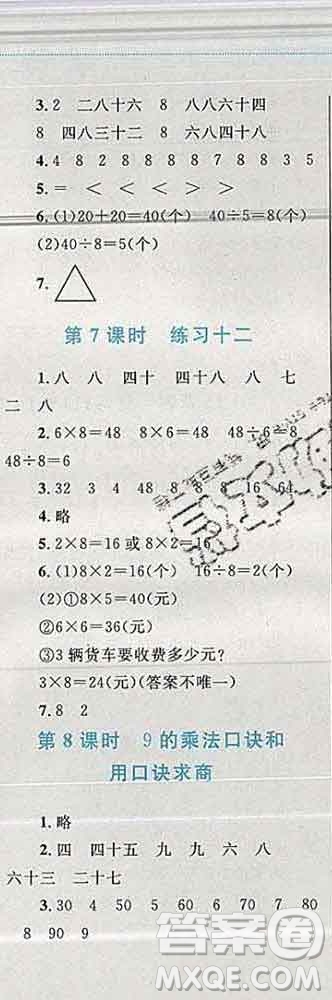 3.2 二八十六 8 八八六十四
8 四八三十二 8 六八四十八
4.4 8 2 8 8 8 8 7 8 8 8 3 5
5.= < < < > >
6.(1)20+20=40(个) 40÷5=8(个)
(2)40÷8=5(个)
7.
第7课时 练习十二
1.八 八 四十 四十八 八 七
二 八
2.6×8=48 8×6=48 48÷6=8
48÷8=6
3.32 3 4 48 8 8 8 16 64
4.略
5.2×8=16或8×2=16
6.(1)8×2=16(元) 16÷2=8(元)
(2)①8×5=40(元)
②6×6=36(元)
③3辆货车要收费多少元?
3×8=24(元)(答案不唯一)
7.8 2
第8课时 9的乘法口诀和
用口诀求商
1.略
2.四 四十五 九 九 六 八
六十三 二十七
3.30 4 50 5 70 7 80
8 90 9
答案圈
MXQE.COM